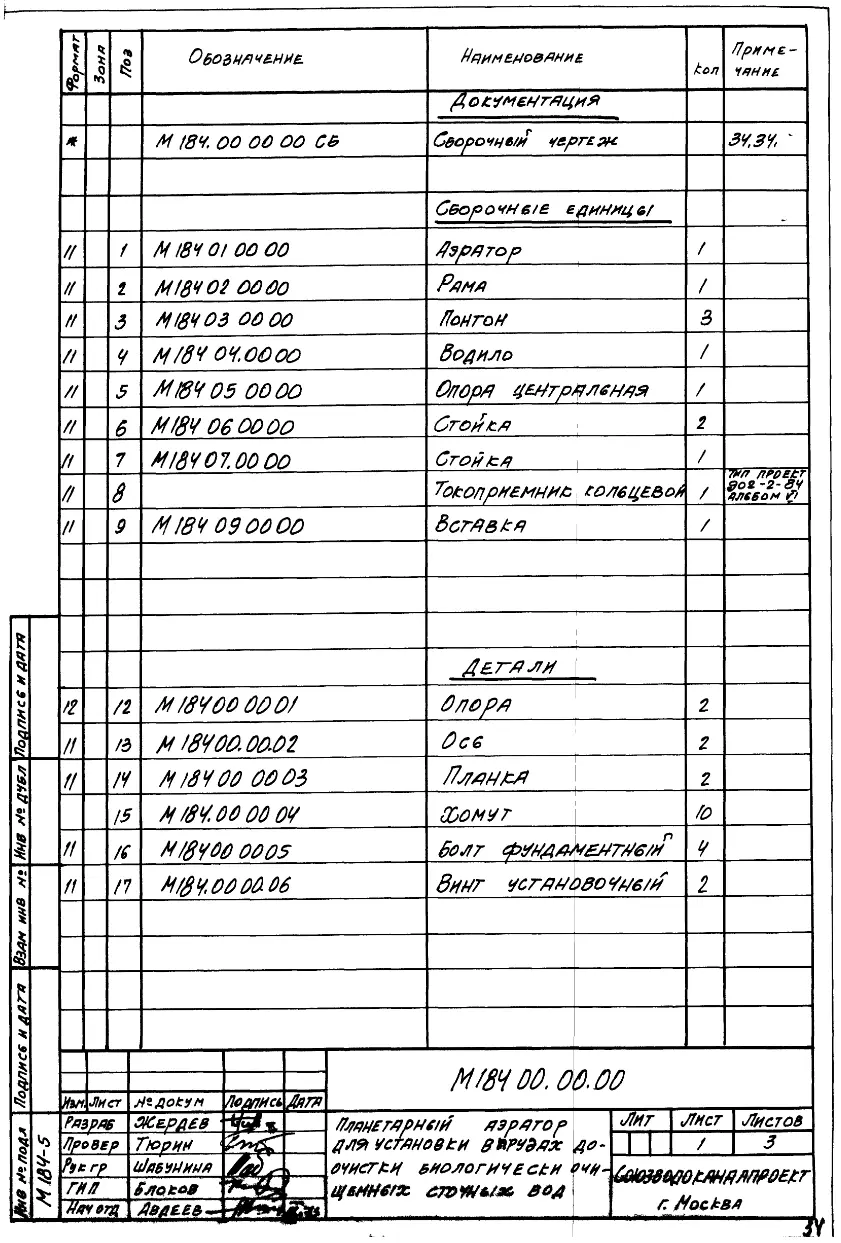 Формат Зона Поз Обозначение Наименование Кол Примечание
Документация
* М 184. 00 00 00 СБ Сборочный чертеж 34.34.
Сборочные единицы
11 1 М 184 01 00 00 Аэратор 1
11 2 М 184 02 00 00 Рама 1
11 3 М 184 03 00 00 Понтон 3
11 4 М 184 04.00 00 Водило 1
11 5 М 184 05 00 00 Опора центральная 1
11 6 М 184 06 00 00 Стойка 2
11 7 М 184 07.00 00 Стойка 1
11 8 Токоприемник кольцевой 1 Тип проект 902-2-84 альбом VI
11 9 М 184 09 00 00 Вставка 1
Детали
12 12 М 184 00 00 01 Опора 2
11 13 М 184 00.00.02 Ось 2
11 14 М 184 00 00 03 Планка 2
15 М 184.00 00 04 Хомут 10
11 16 М 184 00 00 05 Болт фундаментный 4
11 17 М 184.00 00.06 Винт установочный 2
Подпись и дата
Инв № дубл
Взам инв №
Подпись и дата
Инв № подл
М 184-5
Изм. Лист № докум Подпись Дата
Разраб Жердев
Провер Тюрин
Рук гр Шабунина
ГИП Блоков
Нач отд Авдеев
М 184 00. 00.00
Планетарный аэратор
для установки в прудах до-
очистки биологически очи-
щенных сточных вод
Лит Лист Листов
1 3
Союзводоканалпроект
г. Москва
34